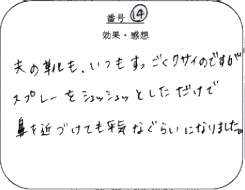 番号 14
効果・感想
夫の靴も、いつもすっごくクサイのですが
スプレーをシュッシュッとしただけで
鼻を近づけても平気なぐらいになりました。